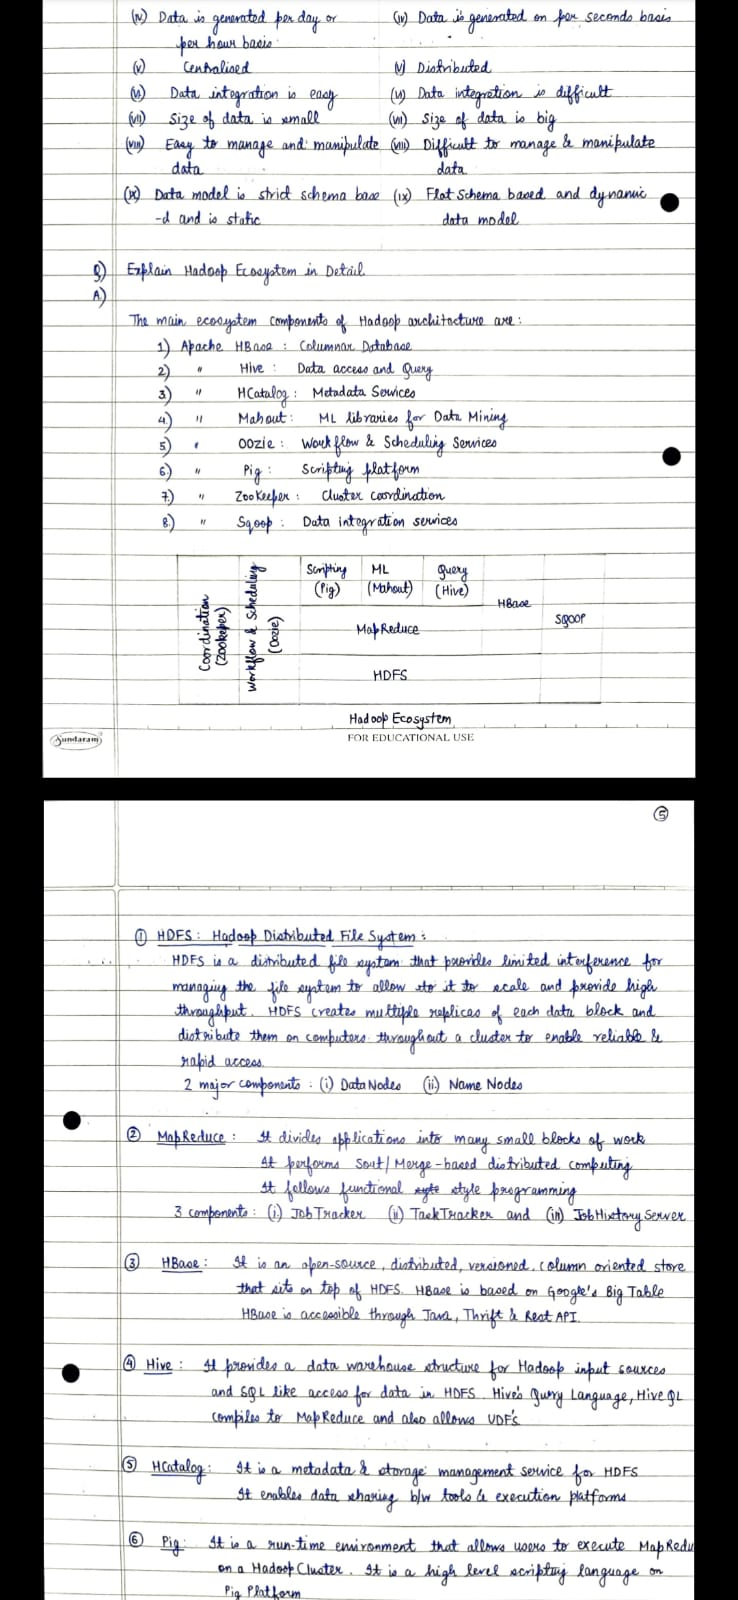 (iv) Data is generated per day or (iv) Data is generated on per seconds basis
per hour basis
(v) Centralised (v) Distributed
(vi) Data integration is easy (vi) Data integration is difficult
(vii) Size of data is small (vii) Size of data is big
(viii) Easy to manage and manipulate (viii) Difficult to manage & manipulate
data data
(ix) Data model is strict schema base (ix) Flat Schema based and dynamic
-d and is static data model
Q) Explain Hadoop Ecosystem in Detail
A)
The main ecosystem components of Hadoop architecture are:
1) Apache HBase : Columnar Database
2) " Hive : Data access and Query
3) " HCatalog : Metadata Services
4) " Mahout : ML libraries for Data Mining
5) " OOZIE : Workflow & Scheduling Services
6) " Pig : Scripting platform
7) " ZooKeeper : Cluster coordination
8) " Sqoop : Data integration services
Coordination
(Zookeper)
Workflow & Scheduling
(Oozie)
Scripting ML Query
(Pig) (Mahout) (Hive)
HBase
SQOOP
MapReduce
HDFS
Hadoop Ecosystem
Sundaram FOR EDUCATIONAL USE
5
① HDFS : Hadoop Distributed File System :
HDFS is a distributed file system that provides limited interference for
managing the file system to allow it to scale and provide high
throughput. HDFS creates multiple replicas of each data block and
distribute them on computers throughout a cluster to enable reliable &
rapid access.
2 major components : (i) DataNodes (ii) Name Nodes
② MapReduce : It divides applications into many small blocks of work
It performs Sort/Merge-based distributed computing
It follows functional style programming
3 components : (i) JobTracker (ii) TaskTracker and (iii) JobHistory Server
③ HBase : It is an open-source, distributed, versioned, column oriented store
that sits on top of HDFS. HBase is based on Google's Big Table
HBase is accessible through Java, Thrift & Rest API.
④ Hive : It provides a data warehouse structure for Hadoop input sources
and SQL like access for data in HDFS. Hive's Query Language, HiveQL
compiles to MapReduce and also allows UDF's
⑤ HCatalog : It is a metadata & storage management service for HDFS
It enables data sharing b/w tools & execution platforms
⑥ Pig : It is a run-time environment that allows users to execute MapRedu
on a Hadoop Cluster. It is a high level scripting language on
Pig Platform